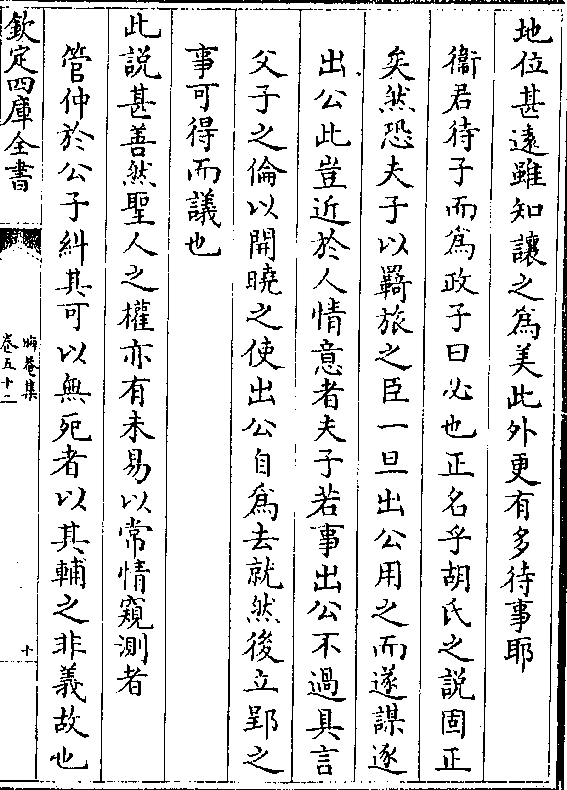 地位甚遠雖知讓之為美此外更有多待事耶
衞君待子而為政子曰必也正名乎胡氏之說固正
矣然恐夫子以羇旅之臣一旦出公用之而遂謀逐
出公此豈近於人情意者夫子若事出公不過具言
父子之倫以開曉之使出公自為去就然後立郢之
事可得而議也
此說甚善然聖人之權亦有未易以常情窺測者
管仲於公子糾其可以無死者以其輔之非義故也
欽定四庫全書
晦菴集
卷五十二
十